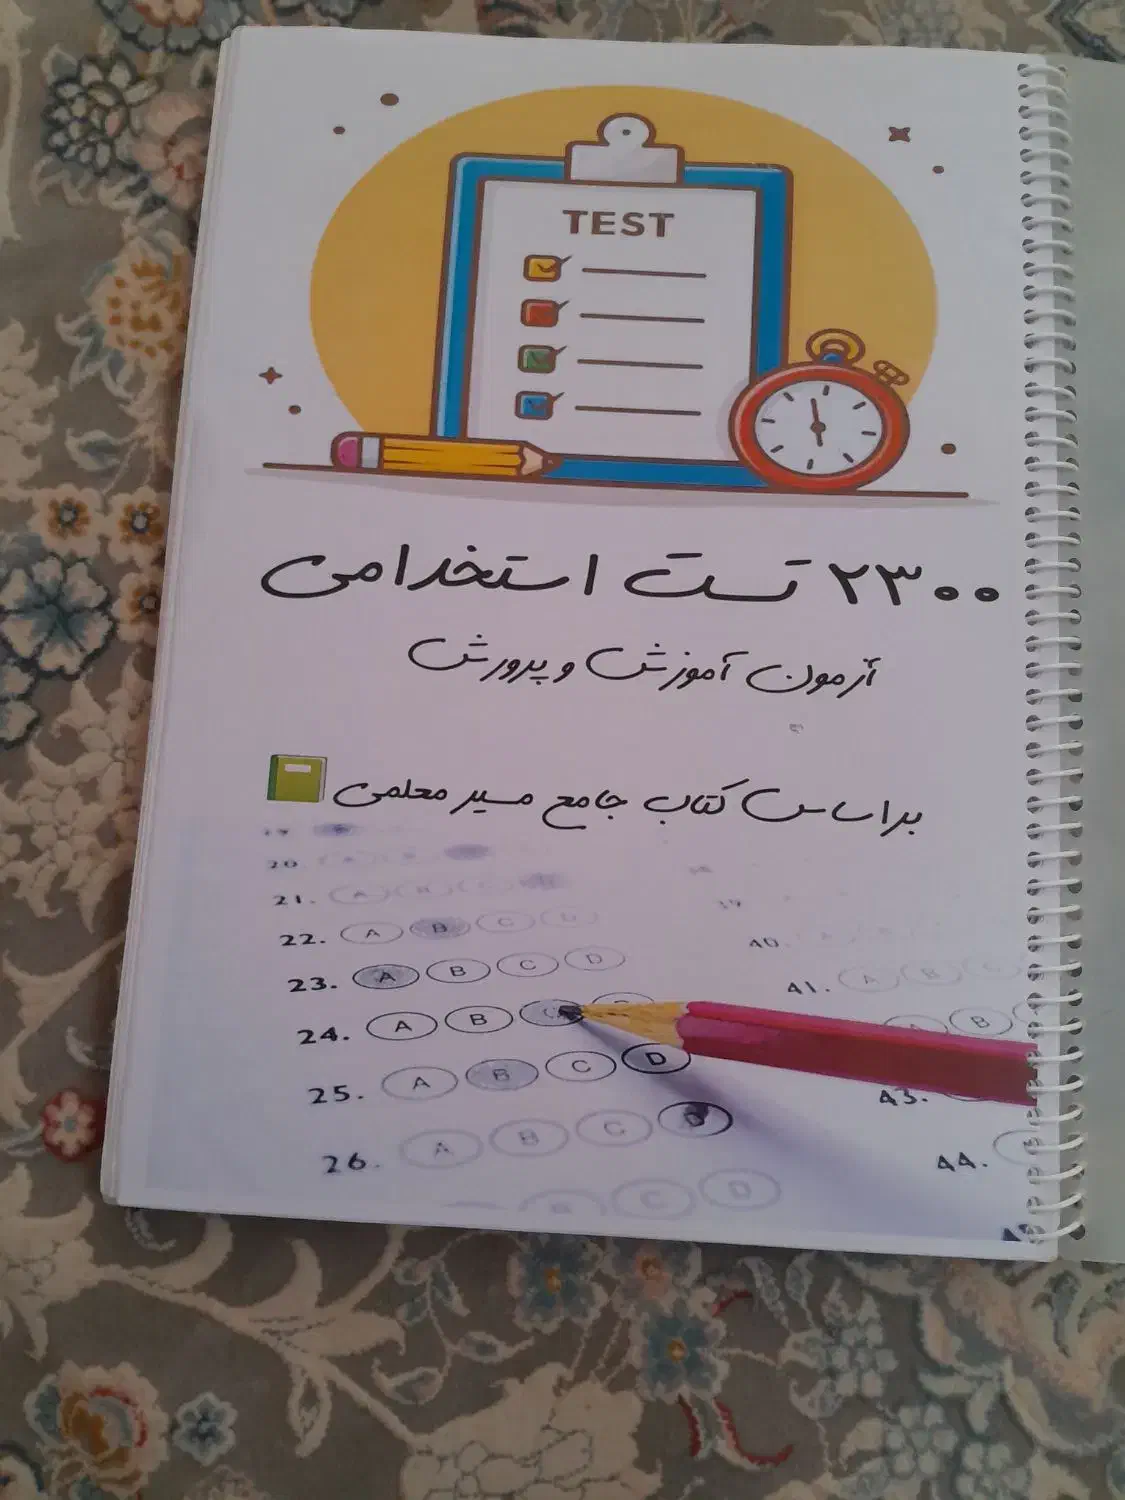 TEST
۲۳۰۰ تست استخدامی
آزمون آموزش و پرورش
براساس کتاب جامع مسیر معلمی
19
20
21. A B C
22. A B C D
23. A B C D
24. A B C
25. A B C D
26. A B C D
B C D
40.
41. A B C
A B
43.
44.